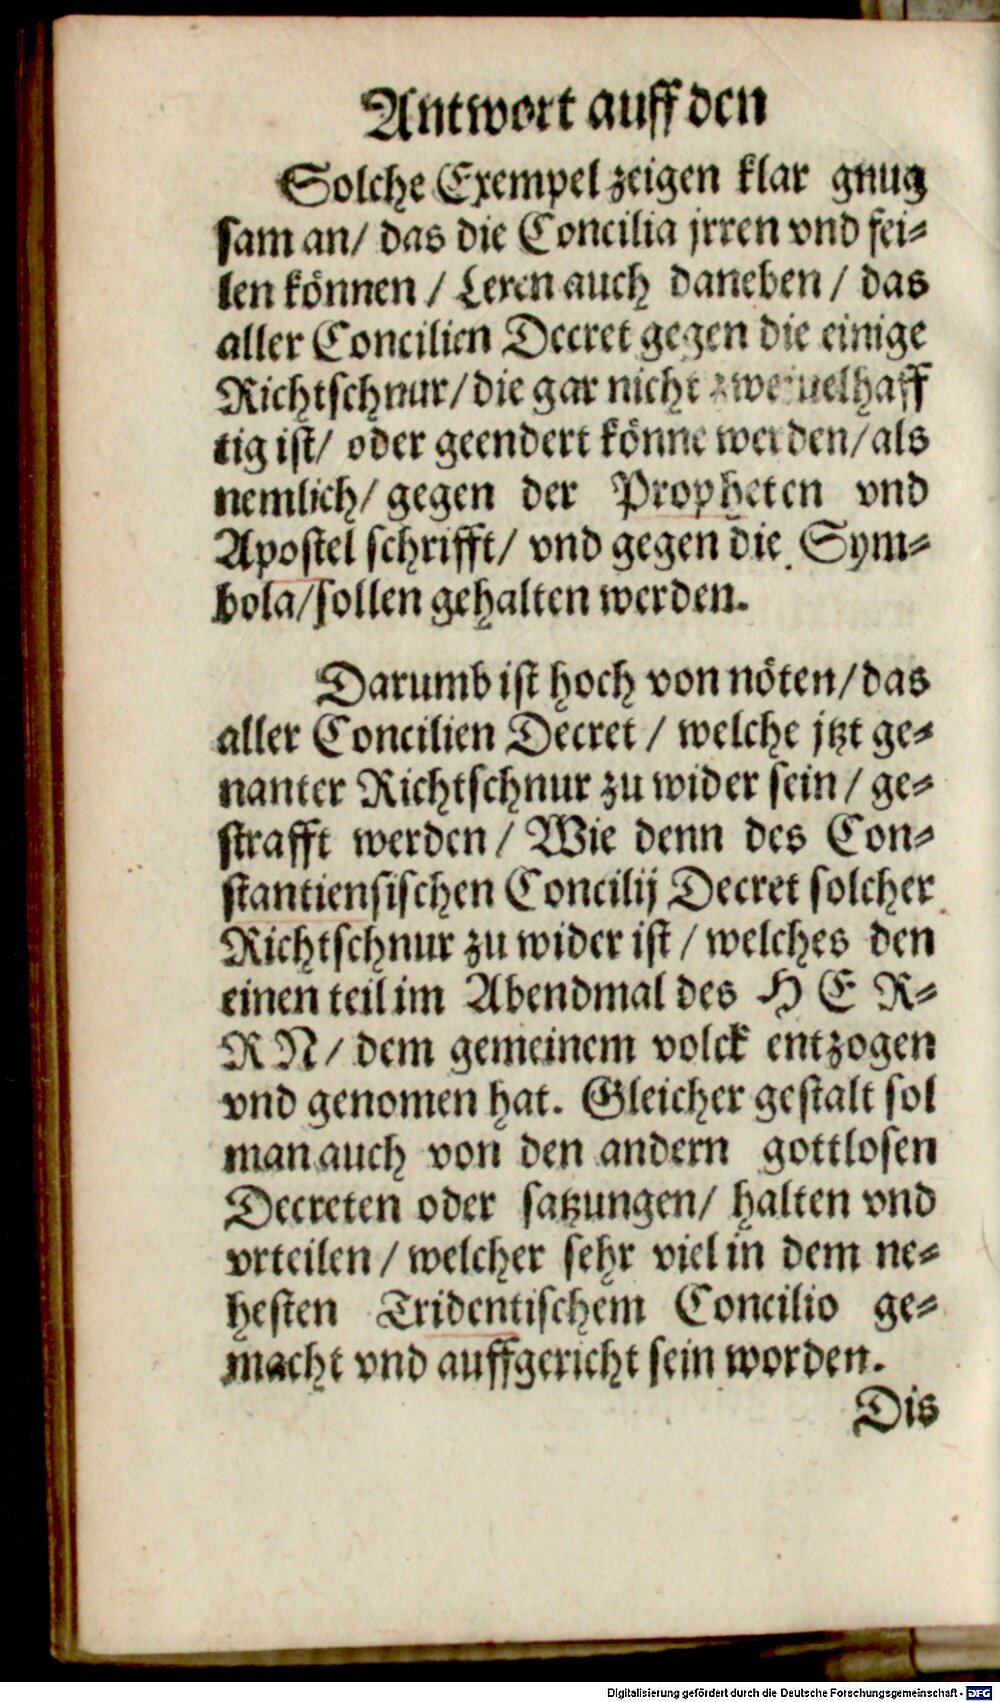 Antwort auff den
Solche Exempel zeigen klar gnug
sam an/ das die Concilia jrren vnd fei⸗
len können / Leren auch daneben / das
aller Concilien Decret gegen die einige
Richtschnur/ die gar nicht zweiuelhaff
tig ist/ oder geendert könne werden/ als
nemlich/ gegen der Propheten vnd
Apostel schrifft/ vnd gegen die Sym⸗
bola/ sollen gehalten werden.
Darumb ist hoch von nöten/ das
aller Concilien Decret / welche jtzt ge⸗
nanter Richtschnur zu wider sein / ge⸗
strafft werden / Wie denn des Con⸗
stantiensischen Concilij Decret solcher
Richtschnur zu wider ist / welches den
einen teil im Abendmal des H E R⸗
R N / dem gemeinem volck entzogen
vnd genomen hat. Gleicher gestalt sol
man auch von den andern gottlosen
Decreten oder satzungen/ halten vnd
vrteilen / welcher sehr viel in dem ne⸗
hesten Tridentischem Concilio ge⸗
macht vnd auffgericht sein worden.
Dis
Digitalisierung gefördert durch die Deutsche Forschungsgemeinschaft - DFG